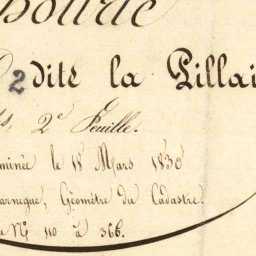 dite la Pillai
2
2e Feuille.
minée le 18 Mars 1830
arnegue, Géomètre du Cadastre.
No 110 à 366.